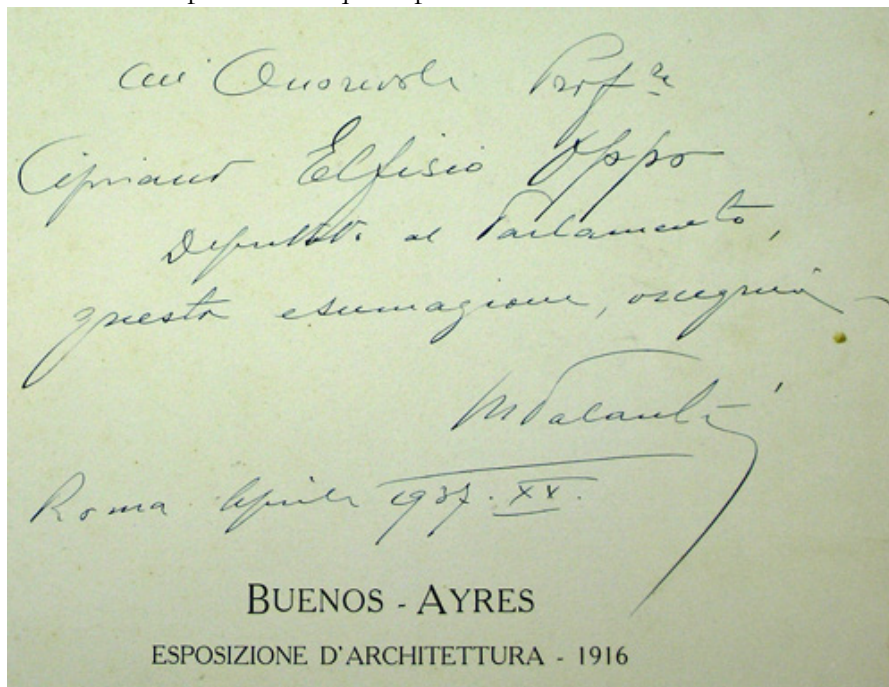 All'Onorevole Prof.re
Cipriano Elfisio Oppo
Deputato al Parlamento,
questa esumazione, ossequia
MPalanti
Roma Aprile 1937.XV.
BUENOS - AYRES
ESPOSIZIONE D'ARCHITETTURA - 1916